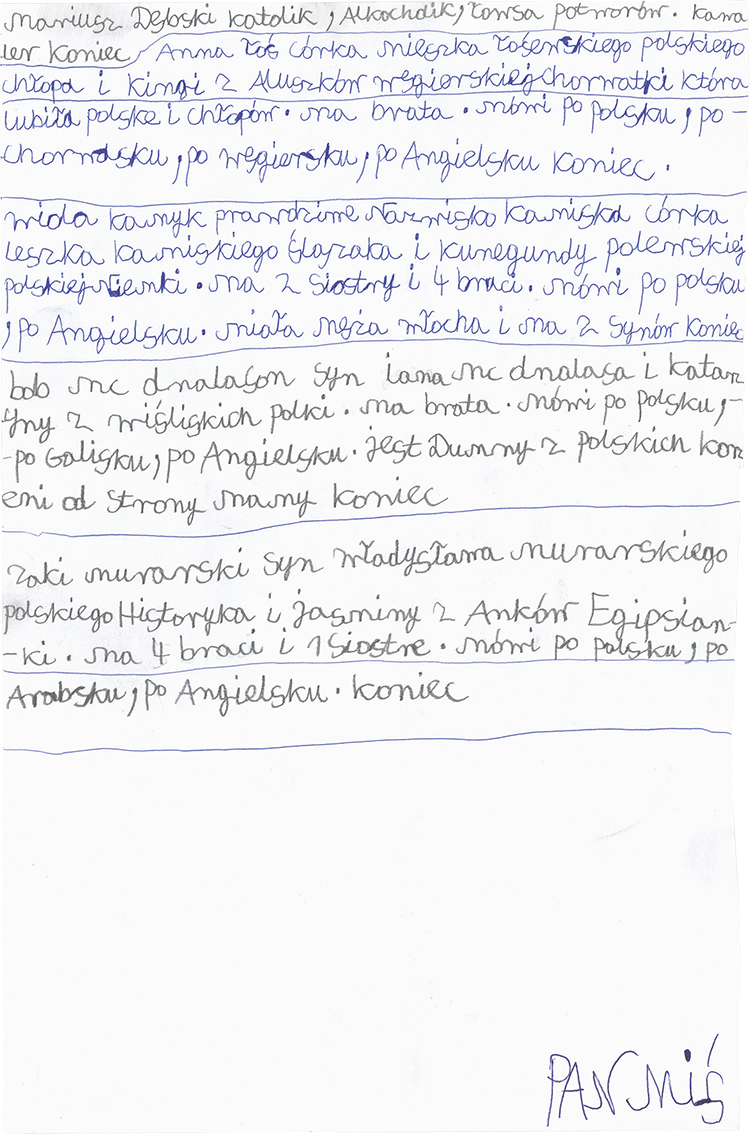 Mariusz Dębski katolik, Alkocholik, Łowsa potworów. kawa
ler koniec / Anna Łoś córka mieszka Łośewskiego polskiego
chłopa i Kingi z Aluszków węgierskiej Chorwatki która
lubiła polskę i chłopów. ma brata. mówi po polsku, po -
chorwasku, po węgiersku, po Angielsku koniec.
wida kamyk prawdziwe Nazwisko kamiska córka
leszka kamiskiego ślązaka i kunegundy polewskiej
polskiej Niemki. ma 2 siostry i 4 braci. mówi po polsku
, po Angielsku. miała męża włocha i ma 2 synów koniec
bob mc dnalason syn iana mc dnalasa i katarz
yny z wiśliskich polki. ma brata. mówi po polsku, -
- po Galisku, po Angielsku. jest Dumny z polskich korz
eni od strony mamy koniec
zaki murarski syn władysława murarskiego
polskiego Historyka i jasminy z Anków Egipsian-
- ki. ma 4 braci i 1 siostre. mówi po polsku, po
Arabsku, po Angielsku. koniec
PAN MIŚ